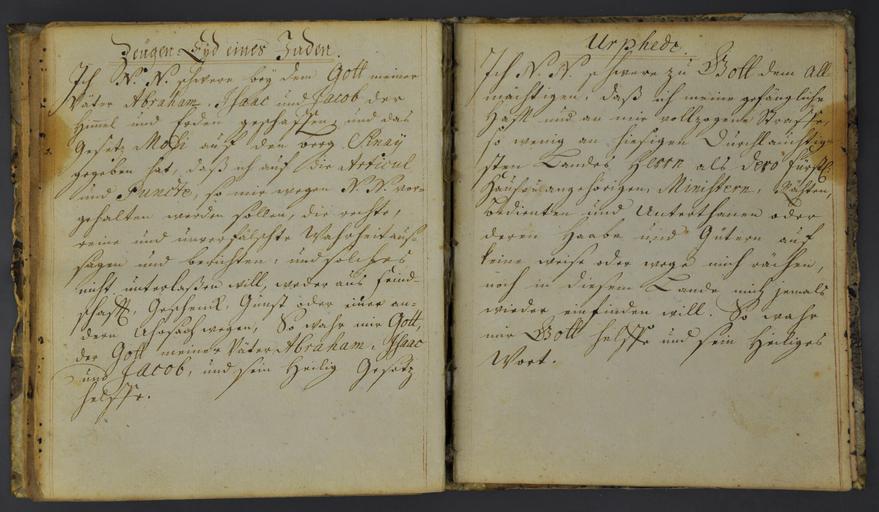 Zeugen-Eyd eines Juden.
Ich N. N. schwere bey dem Gott meiner
Väter Abraham, Isaac und Jacob der
Himel und Erden geschaffen, und das
Gesetz Mosi auf den berg Sinay
gegeben hat, daß ich auf die Articul
und Puncte, so mir wegen N. N. vor-
gehalten werden sollen, die rechte,
reine und unverfälschte Wahrheit aus-
sagen und berichten, und solches
nicht unterlassen will, weder aus feind-
schafft, Geschenk, Gunst oder einer an-
dern Uhrsach wegen, So wahr mir Gott,
der Gott meiner Väter Abraham, Isaac
und Jacob, und sein heilig Gesetz
helffe.
Urphede.
Ich N. N. schwere zu Gott dem all
mächtigen, daß ich meine gefängliche
Hafft und an mir vollzogene Straffe,
so wenig an hiesigen Durchlauchtig-
sten Landes Herrn als Dero Fürstl.
Hauß angehörigen, Ministern, Räthen,
bedienten und Unterthanen oder
deren Haabe und Gütern auf
keine weise oder wege mich rächen,
noch in diesem Lande mich jemals
wieder einfinden will. So wahr
mir Gott helffe und sein heiliges
Wort.